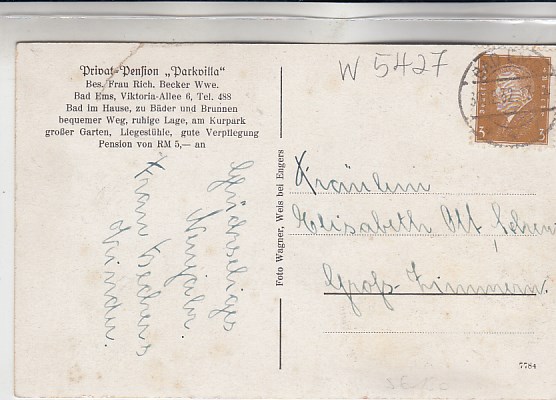 Privat-Pension „Parkvilla"
Bes. Frau Rich. Becker Wwe.
Bad Ems, Viktoria-Allee 6, Tel. 488
Bad im Hause, zu Bäder und Brunnen
bequemer Weg, ruhige Lage, am Kurpark
großer Garten, Liegestühle, gute Verpflegung
Pension von RM 5,— an
Glückseliges
Neujahr.
Frau Becker &
Kinder.
Foto Wagner, Weis bei Engers
W 5427
3 3
Fräulein
Elisabeth Ott
Groß-Zimmern.
7784